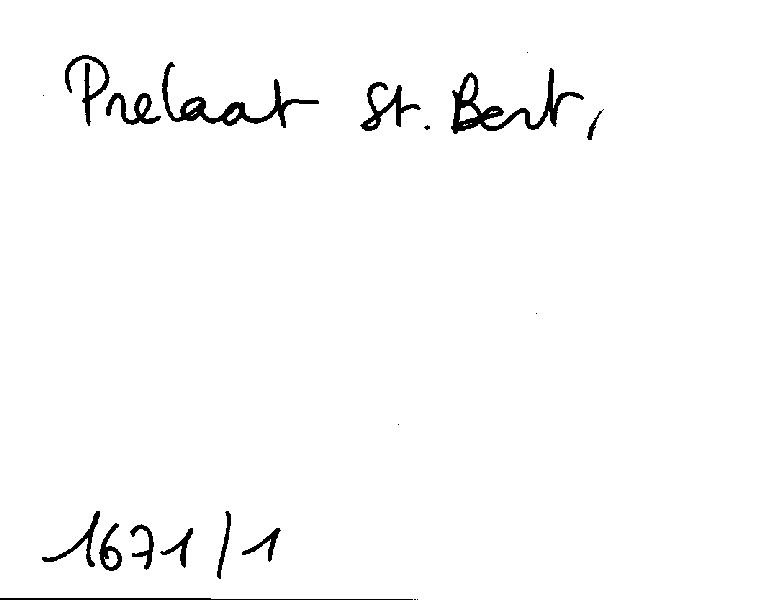 Prelaat St. Bert,
1671/1